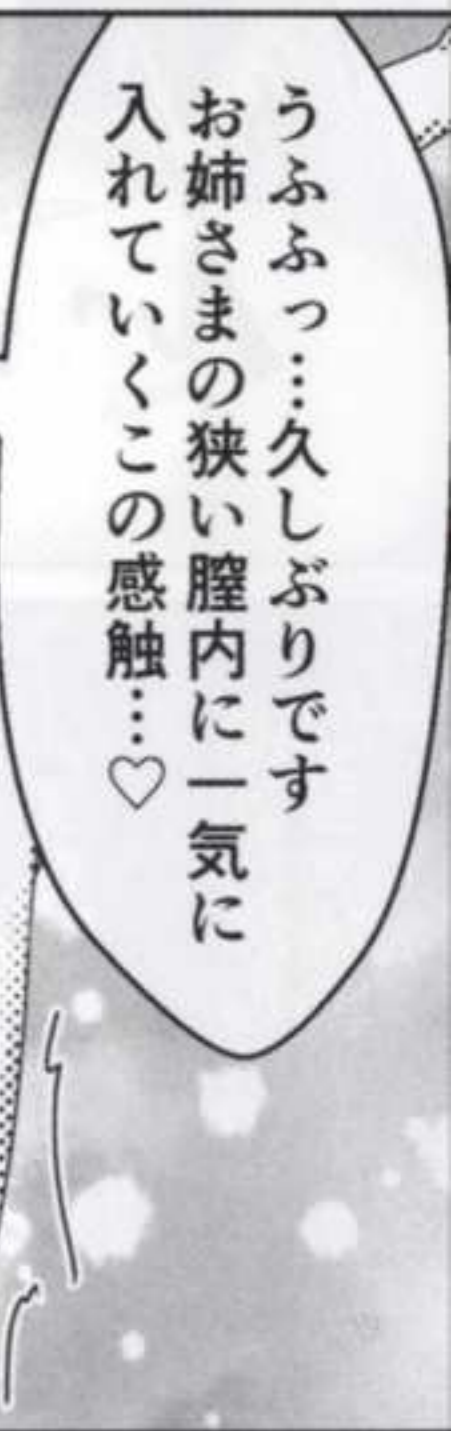 うふふっ…久しぶりです
お姉さまの狭い膣内に一気に
入れていくこの感触…♡